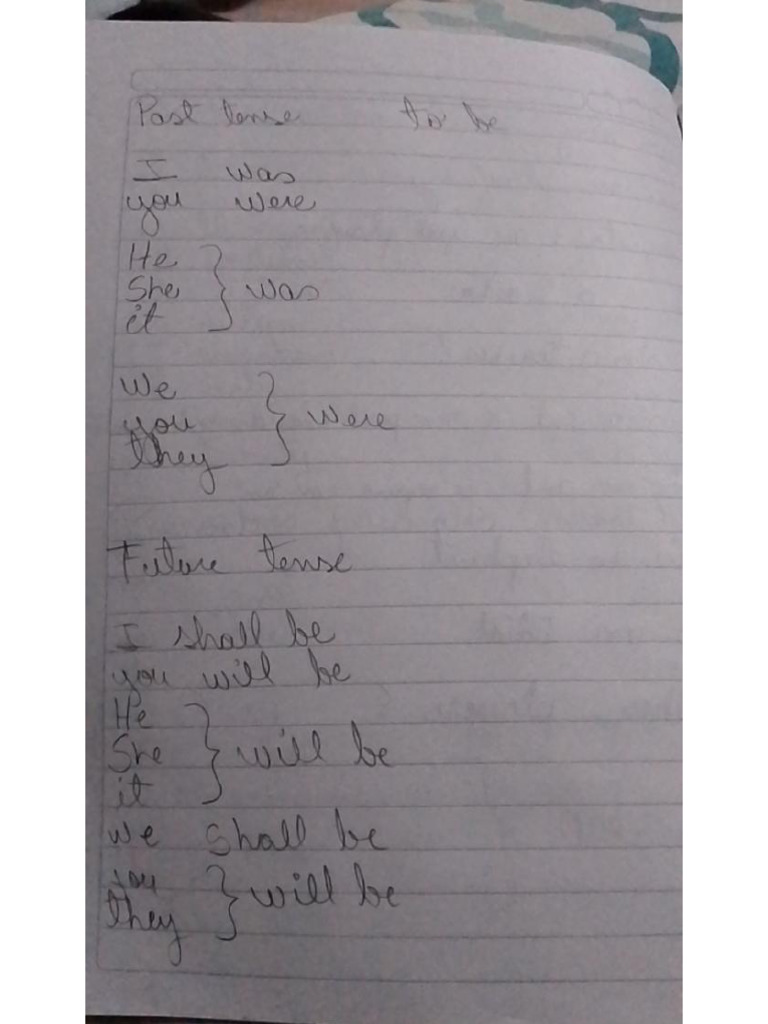 Past tense to be
I was
you were
He
She } was
it
We
you } were
they
Future tense
I shall be
you will be
He
She } will be
it
we shall be
you } will be
they